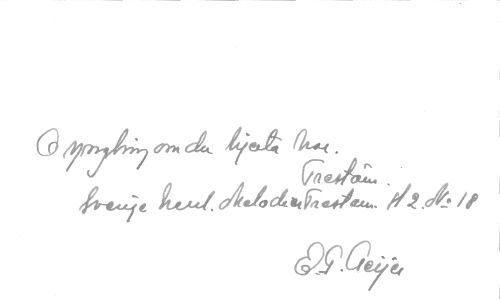 O yngling om du hjerta har.
Trestäm.
Sverige Melodier Trestäm. H 2. No 18
E. G. Geijer